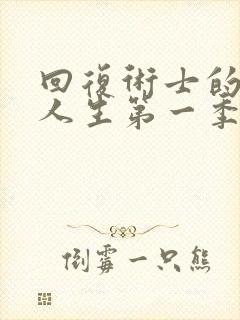 回復術士的
人生第一季
倒霉一只熊